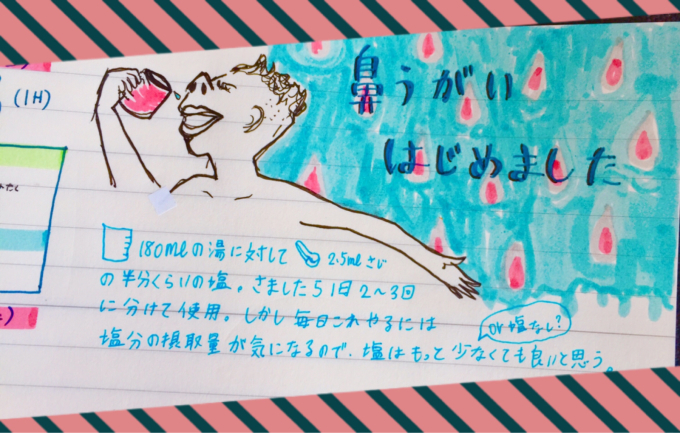 (1H)
鼻うがい
はじめました
180mlの湯に対して 2.5mlさじ
の半分くらいの塩。さましたら1日2〜3回
に分けて使用。しかし毎日これやるには
or塩なし?
塩分の摂取量が気になるので、塩はもっと少なくても良いと思う。